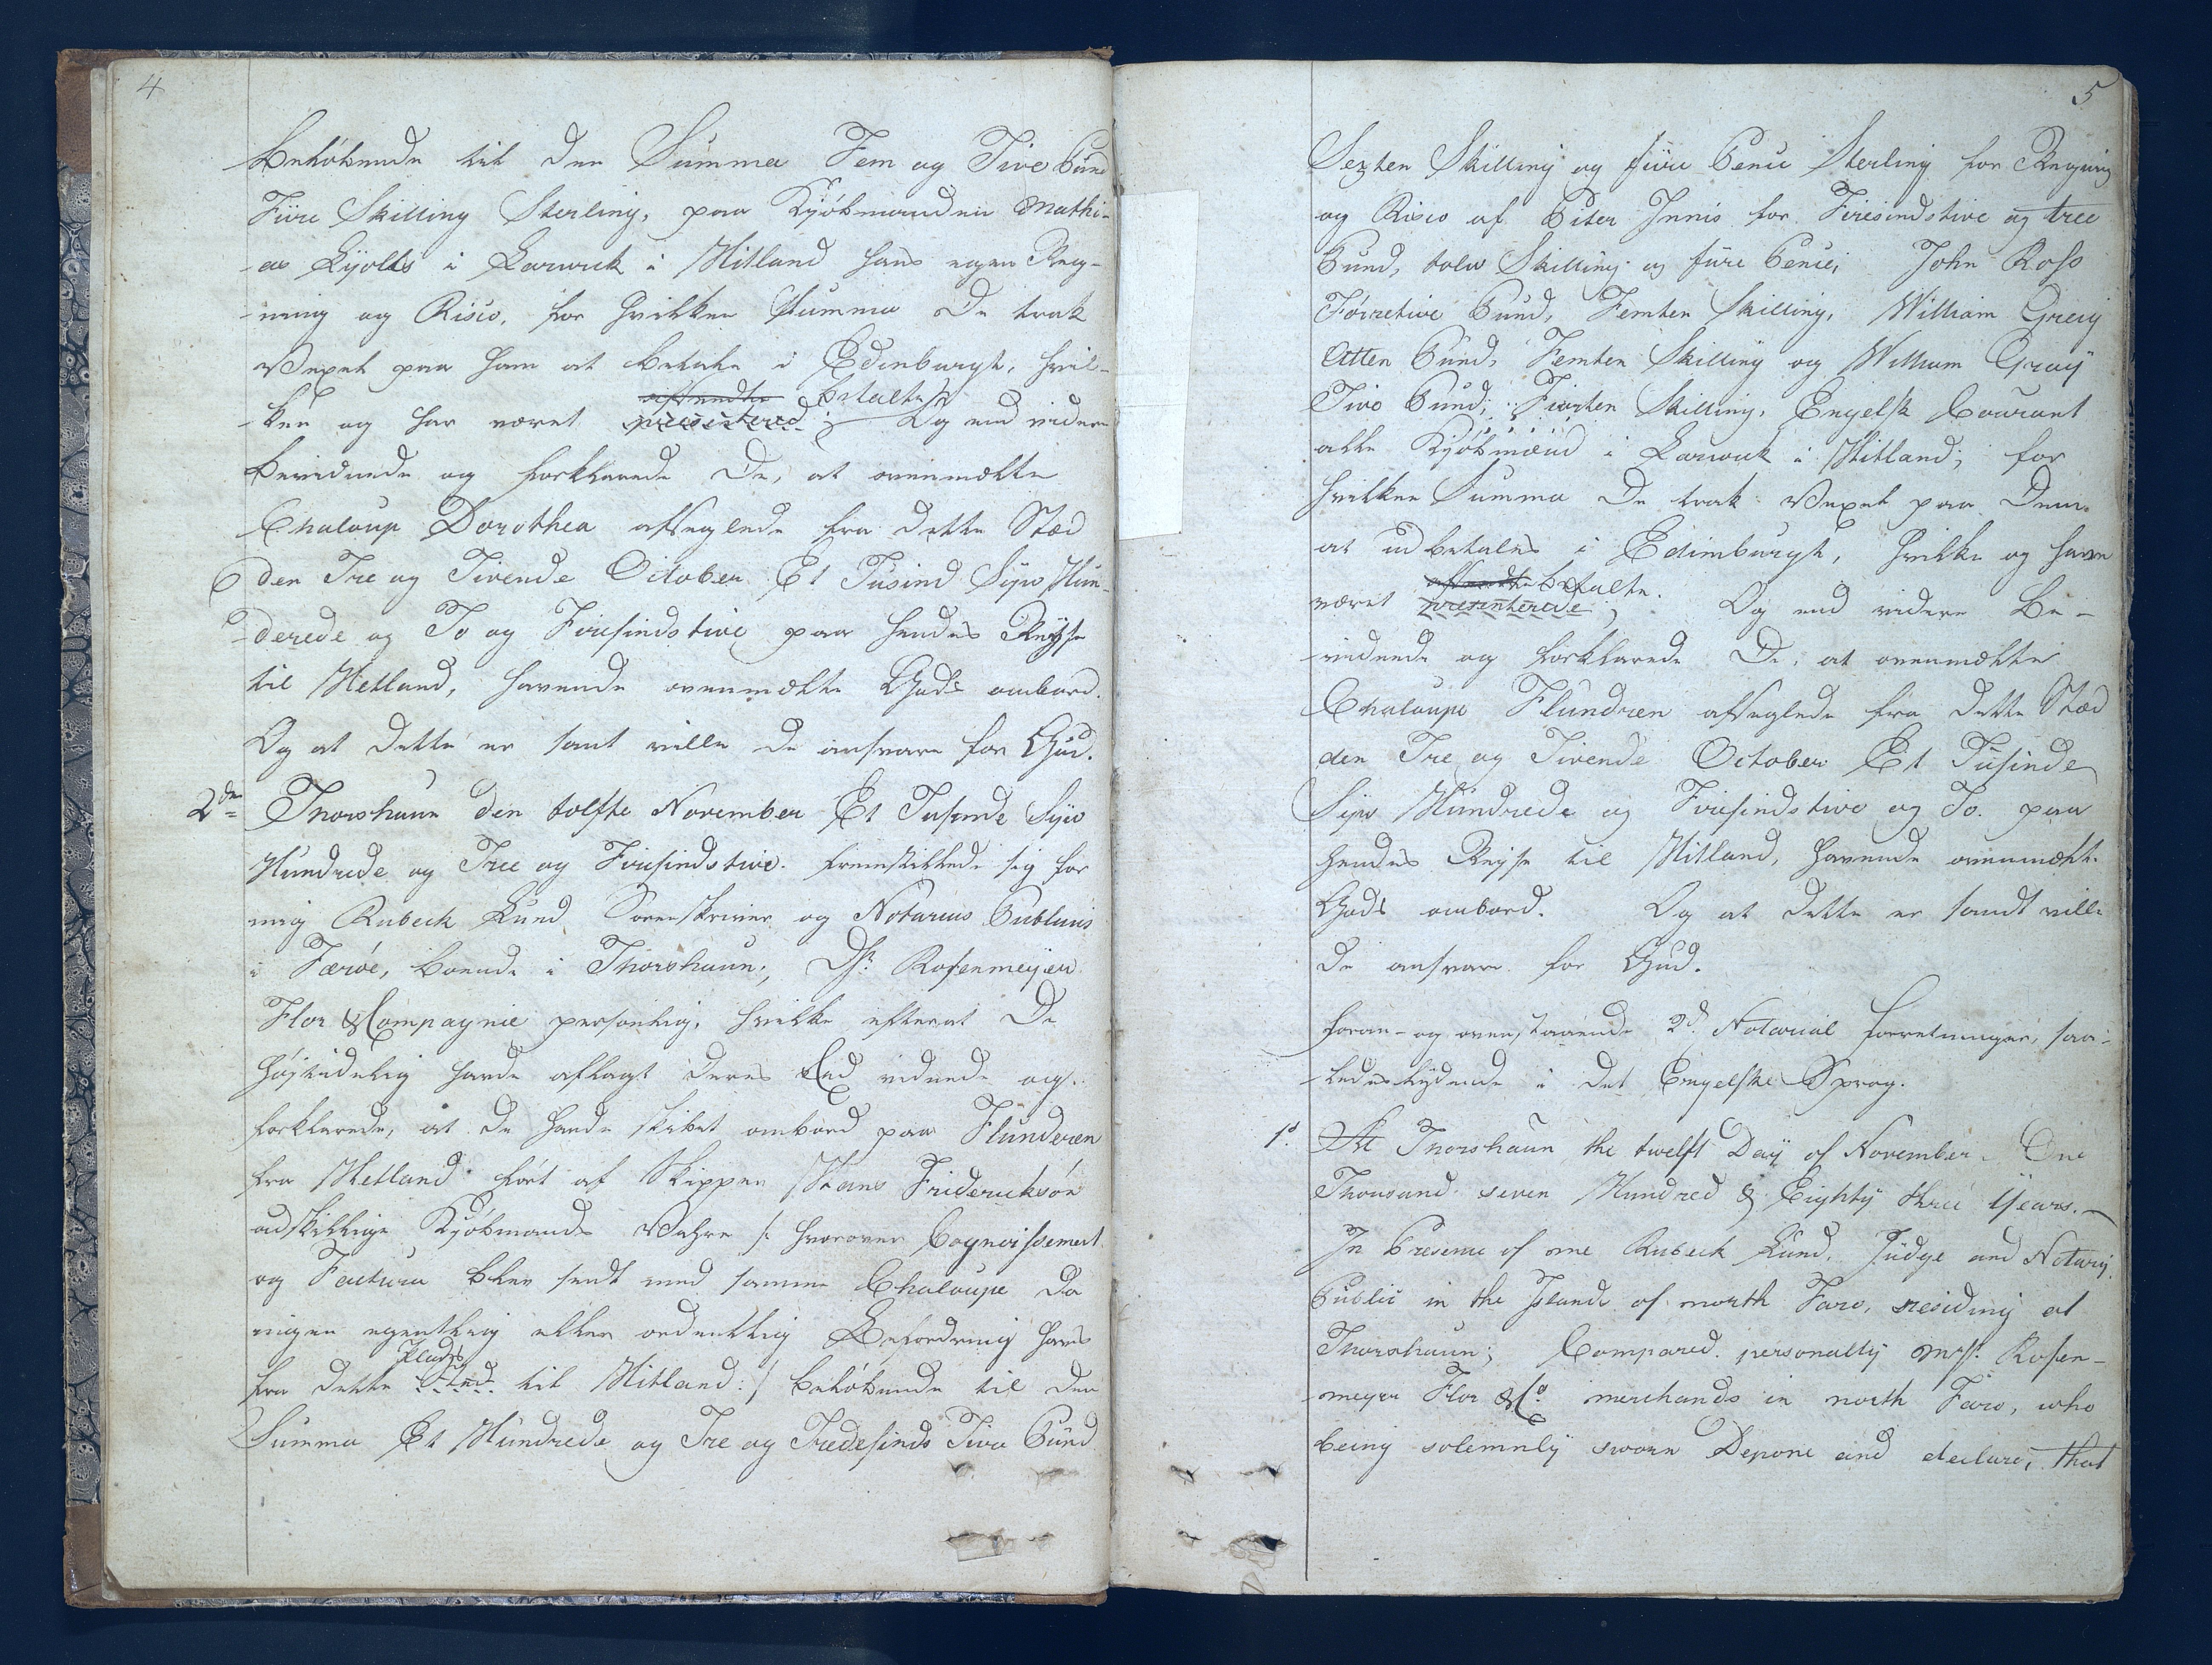 4
Beløbende til den Summa Fem og Tive Pund
Fiire Skilling Sterling, paa Kjøbmanden Mathi-
-as Gjølls i Larwick i Hitland hans egen Reg-
-ning og Risico, for hvilken Summa De trak
Vexel paa ham at betale i Edinburgh, hvil-
affendte betalte
-ken og har været præsentered; Og end videre
bevidnede og forklarede De, at ovenmelte
Chaloup Dorothea afseglede fra dette Stæd
den Tre og Tivende October Et Tusind Sÿv Hun-
-derede og To og Firesindstive paa hendes Reÿse
til Hetland, havende ovenmelte Gods ombord.
Og at dette er sant ville de ansvare for Gud.
2den Thorshaun den tolfte November Et Tusende Sÿv
Hundrede og Tree og Firesindstive fremstillede sig for
mig Rubeck Lund Sorenskriver og Notarius Publicus
i Færøe, boende i Thorshaun; Dhr. Rosenmeÿer
Flor & Compagnie personlig, hvilke efterat De
højtidelig havde aflagt deres Eed vidnede og
forklarede, at de havde skibet ombord paa Flunderen
fra Hetland ført af Skipper Hans Fridericksøn
adskillige Kjøbmands Vahre /: hvorover Cognoissement
og Factura blev sendt med samme Chaloupe da
ingen egentlig eller ordentlig Befordring haves
Plads
fra dette Sted til Hitland :/ beløbende til den
Summa Et Hundrede og Tre og Tredesinds Tive Pund
5
Sexten Skilling og fiire Pence Sterling for Regning
og Risico af Piter Innis for Firesindstive og tree
Pund, tolv Skilling og fiire Pence; John Ross
Førretive Pund, Femten Skilling, William Greig
Atten Pund, Femten Skilling og William Gray
Tive Pund, Fiorten Skilling, Engelsk Courant
alle Kjøbmænd i Larwick i Hitland; for
hvilken Summa De trak Vexel paa Dem
at udbetales i Edimburgh, hvilke og have
affendte betalte.
været præsenterede; Og end videre be-
-vidnede og forklarede De, at ovenmelte
Chaloupe Flundren afseglede fra dette Stæd
den Tre og Tivende October Et Tusinde
Sÿv Hundrede og Firesindstive og To. paa
hendes Reÿse til Hitland, havende ovenmelte
Gods ombord. Og at dette er sandt ville
De ansvare for Gud.
foran- og ovenstaaende 2de Notarial forretninger, saa-
-ledes lÿdende i det Engelske Sprog.
1o. At Thorshaun the twelft Daÿ of November One
Thousand seven Hundred & Eighty three Years.
In Presence of me Rubeck Lund, Judge and Notarÿ
Public in the Islands of north Faro, residing at
Thorshaun; Compared personally Mrss. Rosen-
-meyer Flor & Co. merchands in north Faro, who
being solemnlÿ sworn Depone and declare, that